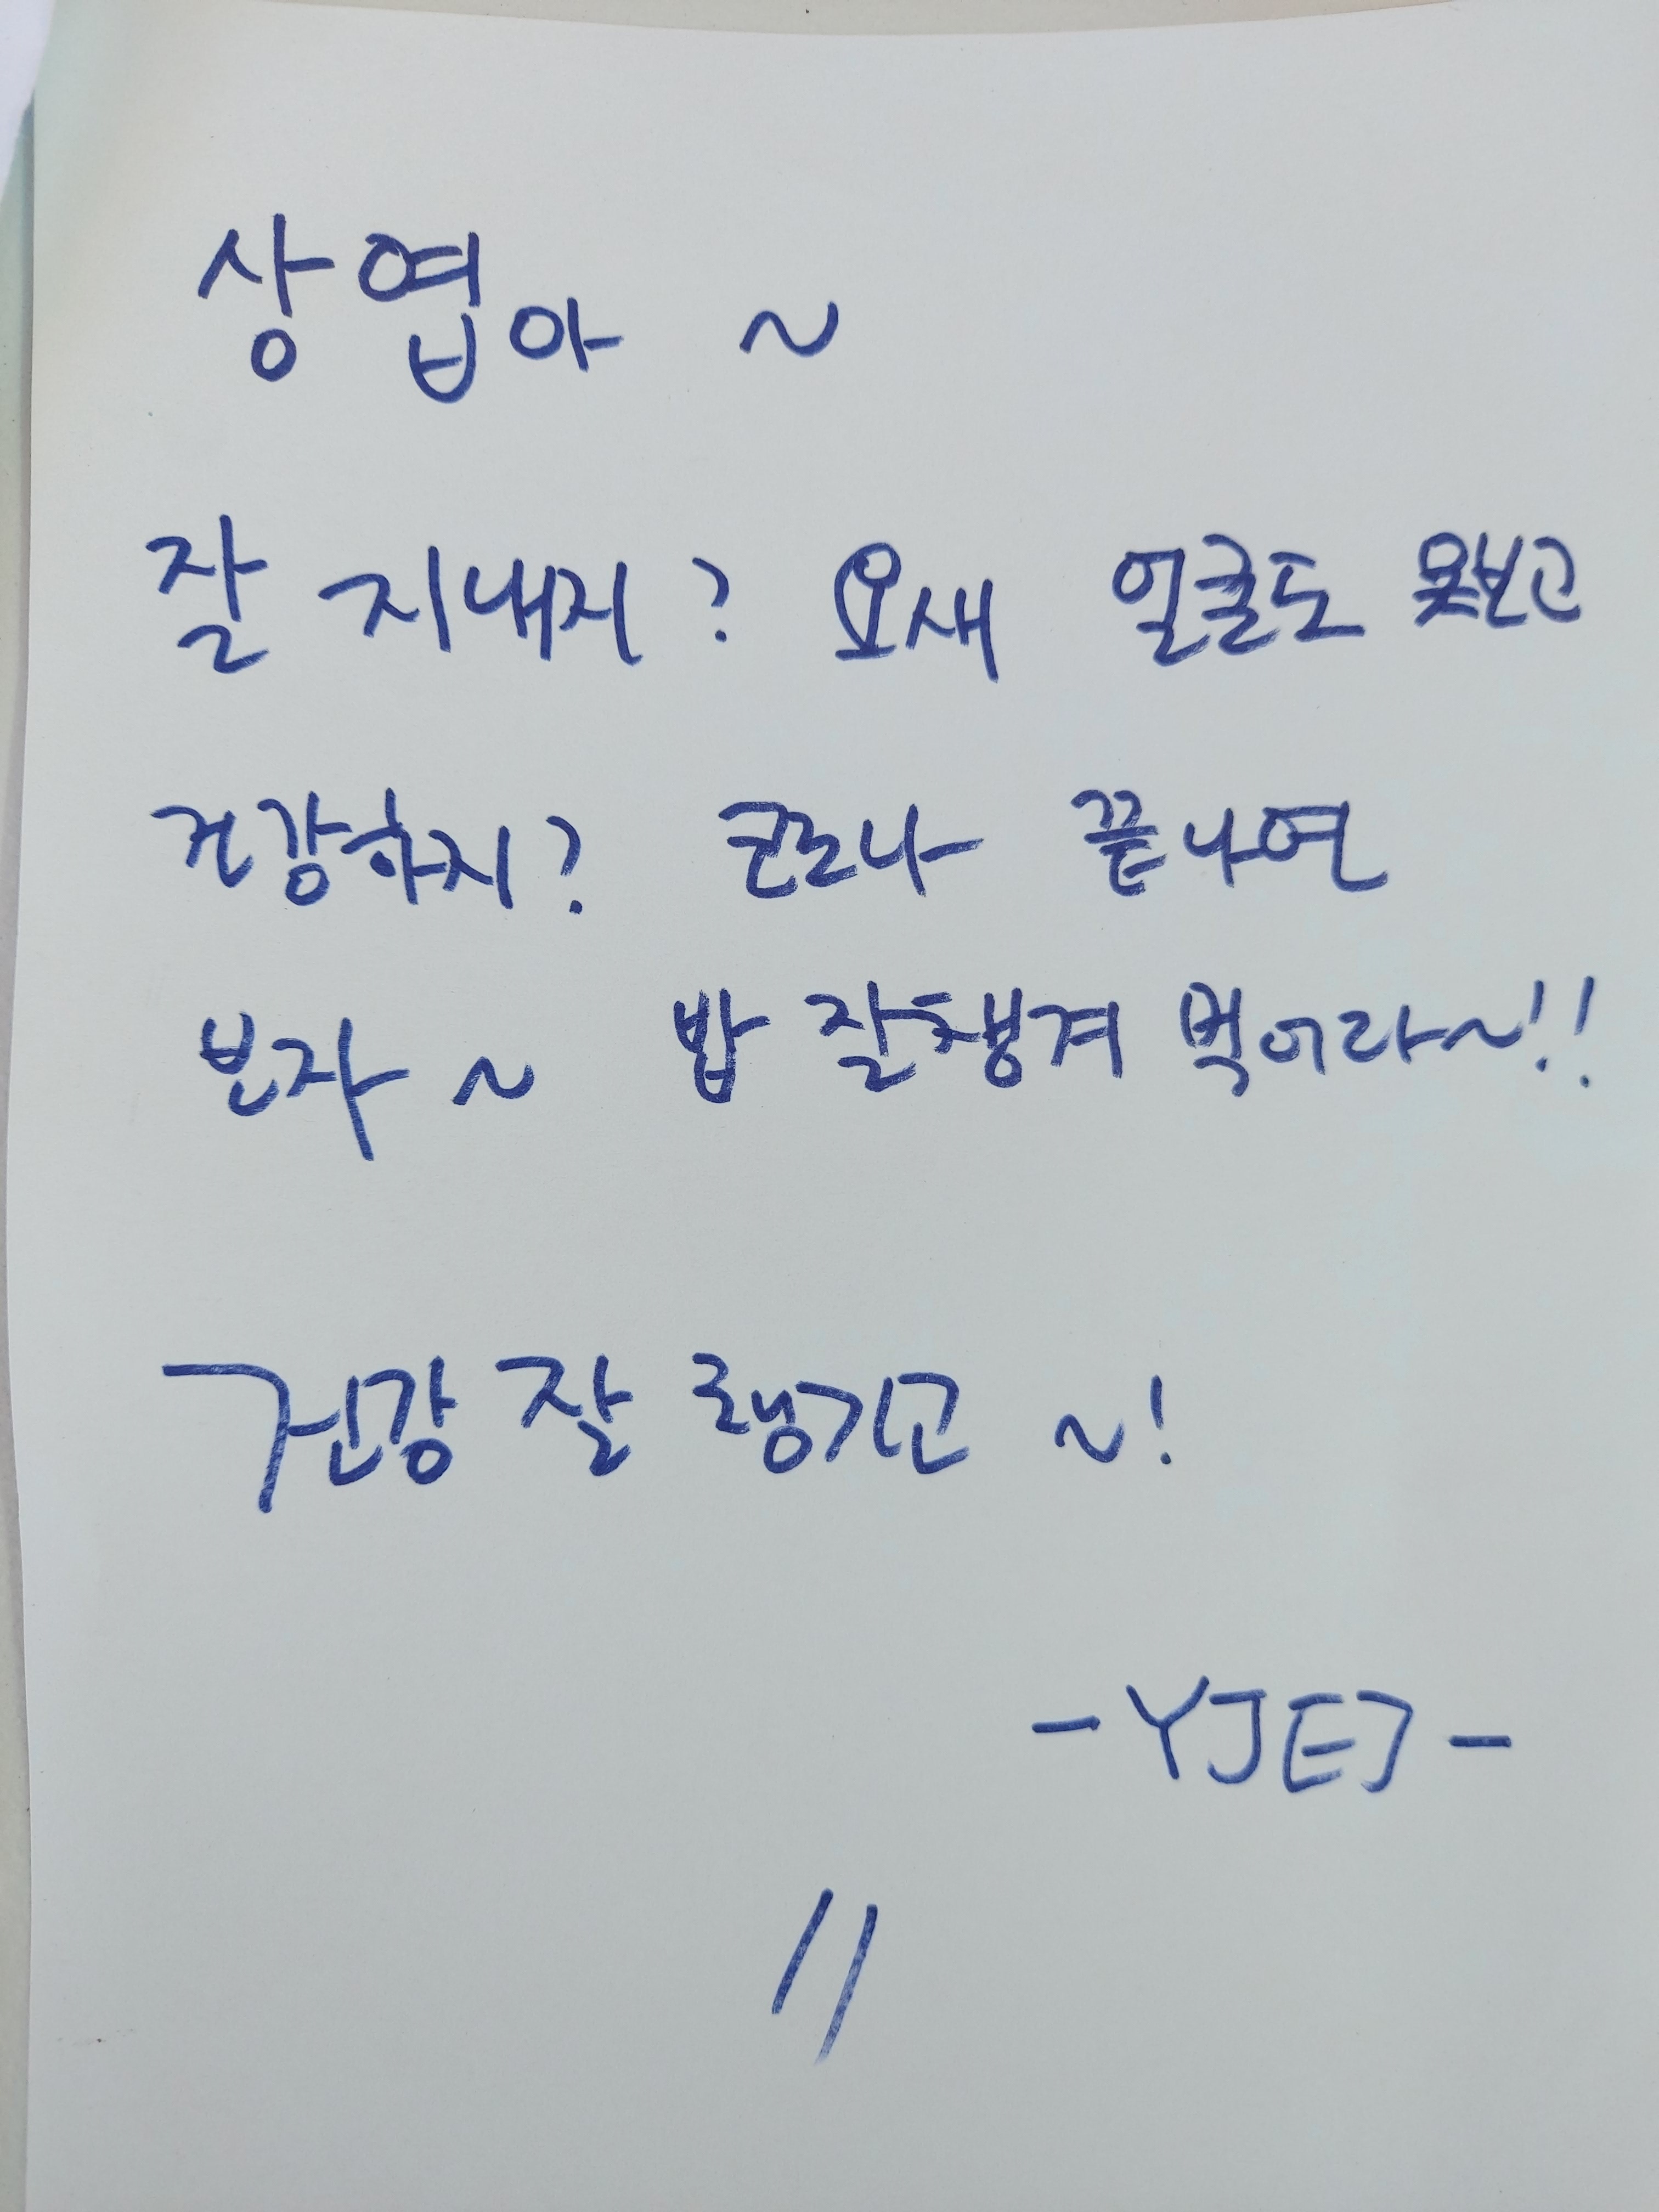 상엽아 ~
잘 지내지? 요새 얼굴도 못보고
건강하지? 코로나 끝나면
보자 ~ 밥 잘챙겨 먹어라~!!
건강 잘 챙기고 ~!
-YJEJ-
//